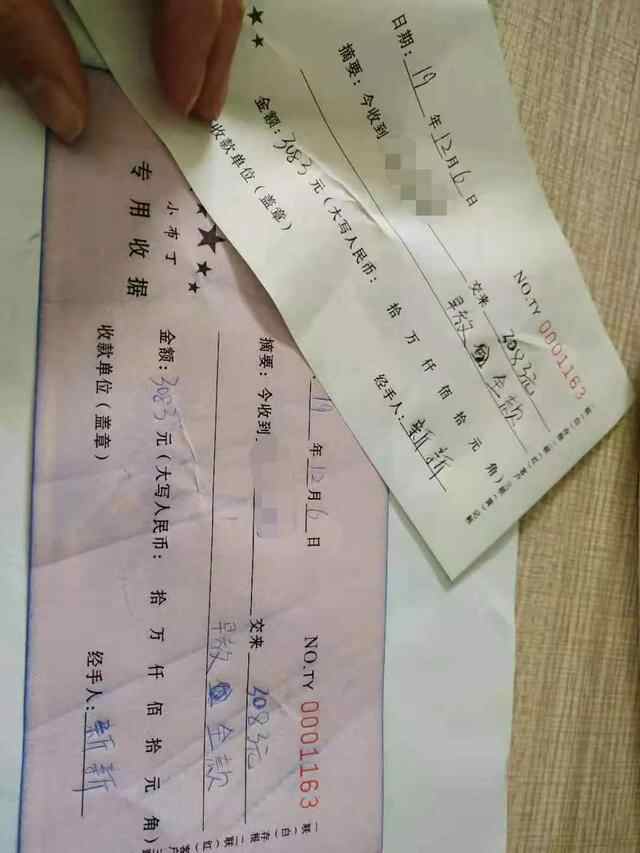 NO.TY 0001163
日期：19年12月6日
摘要：今收到 交来 3083元
早教 全款
金额：3083元（大写人民币： 拾 万 仟 佰 拾 元 角
收款单位（盖章） 经手人：新新
小布丁
专用收据
NO.TY 0001163
19年12月6日
摘要：今收到 交来 3083元
早教 全款
金额：3083元（大写人民币： 拾 万 仟 佰 拾 元 角）
收款单位（盖章） 经手人：新新